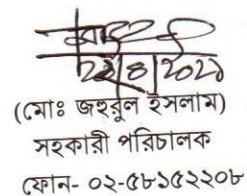 ২২/৪/২০২১
(মোঃ জহুরুল ইসলাম)
সহকারী পরিচালক
ফোন- ০২-৫৮১৫২২০৮